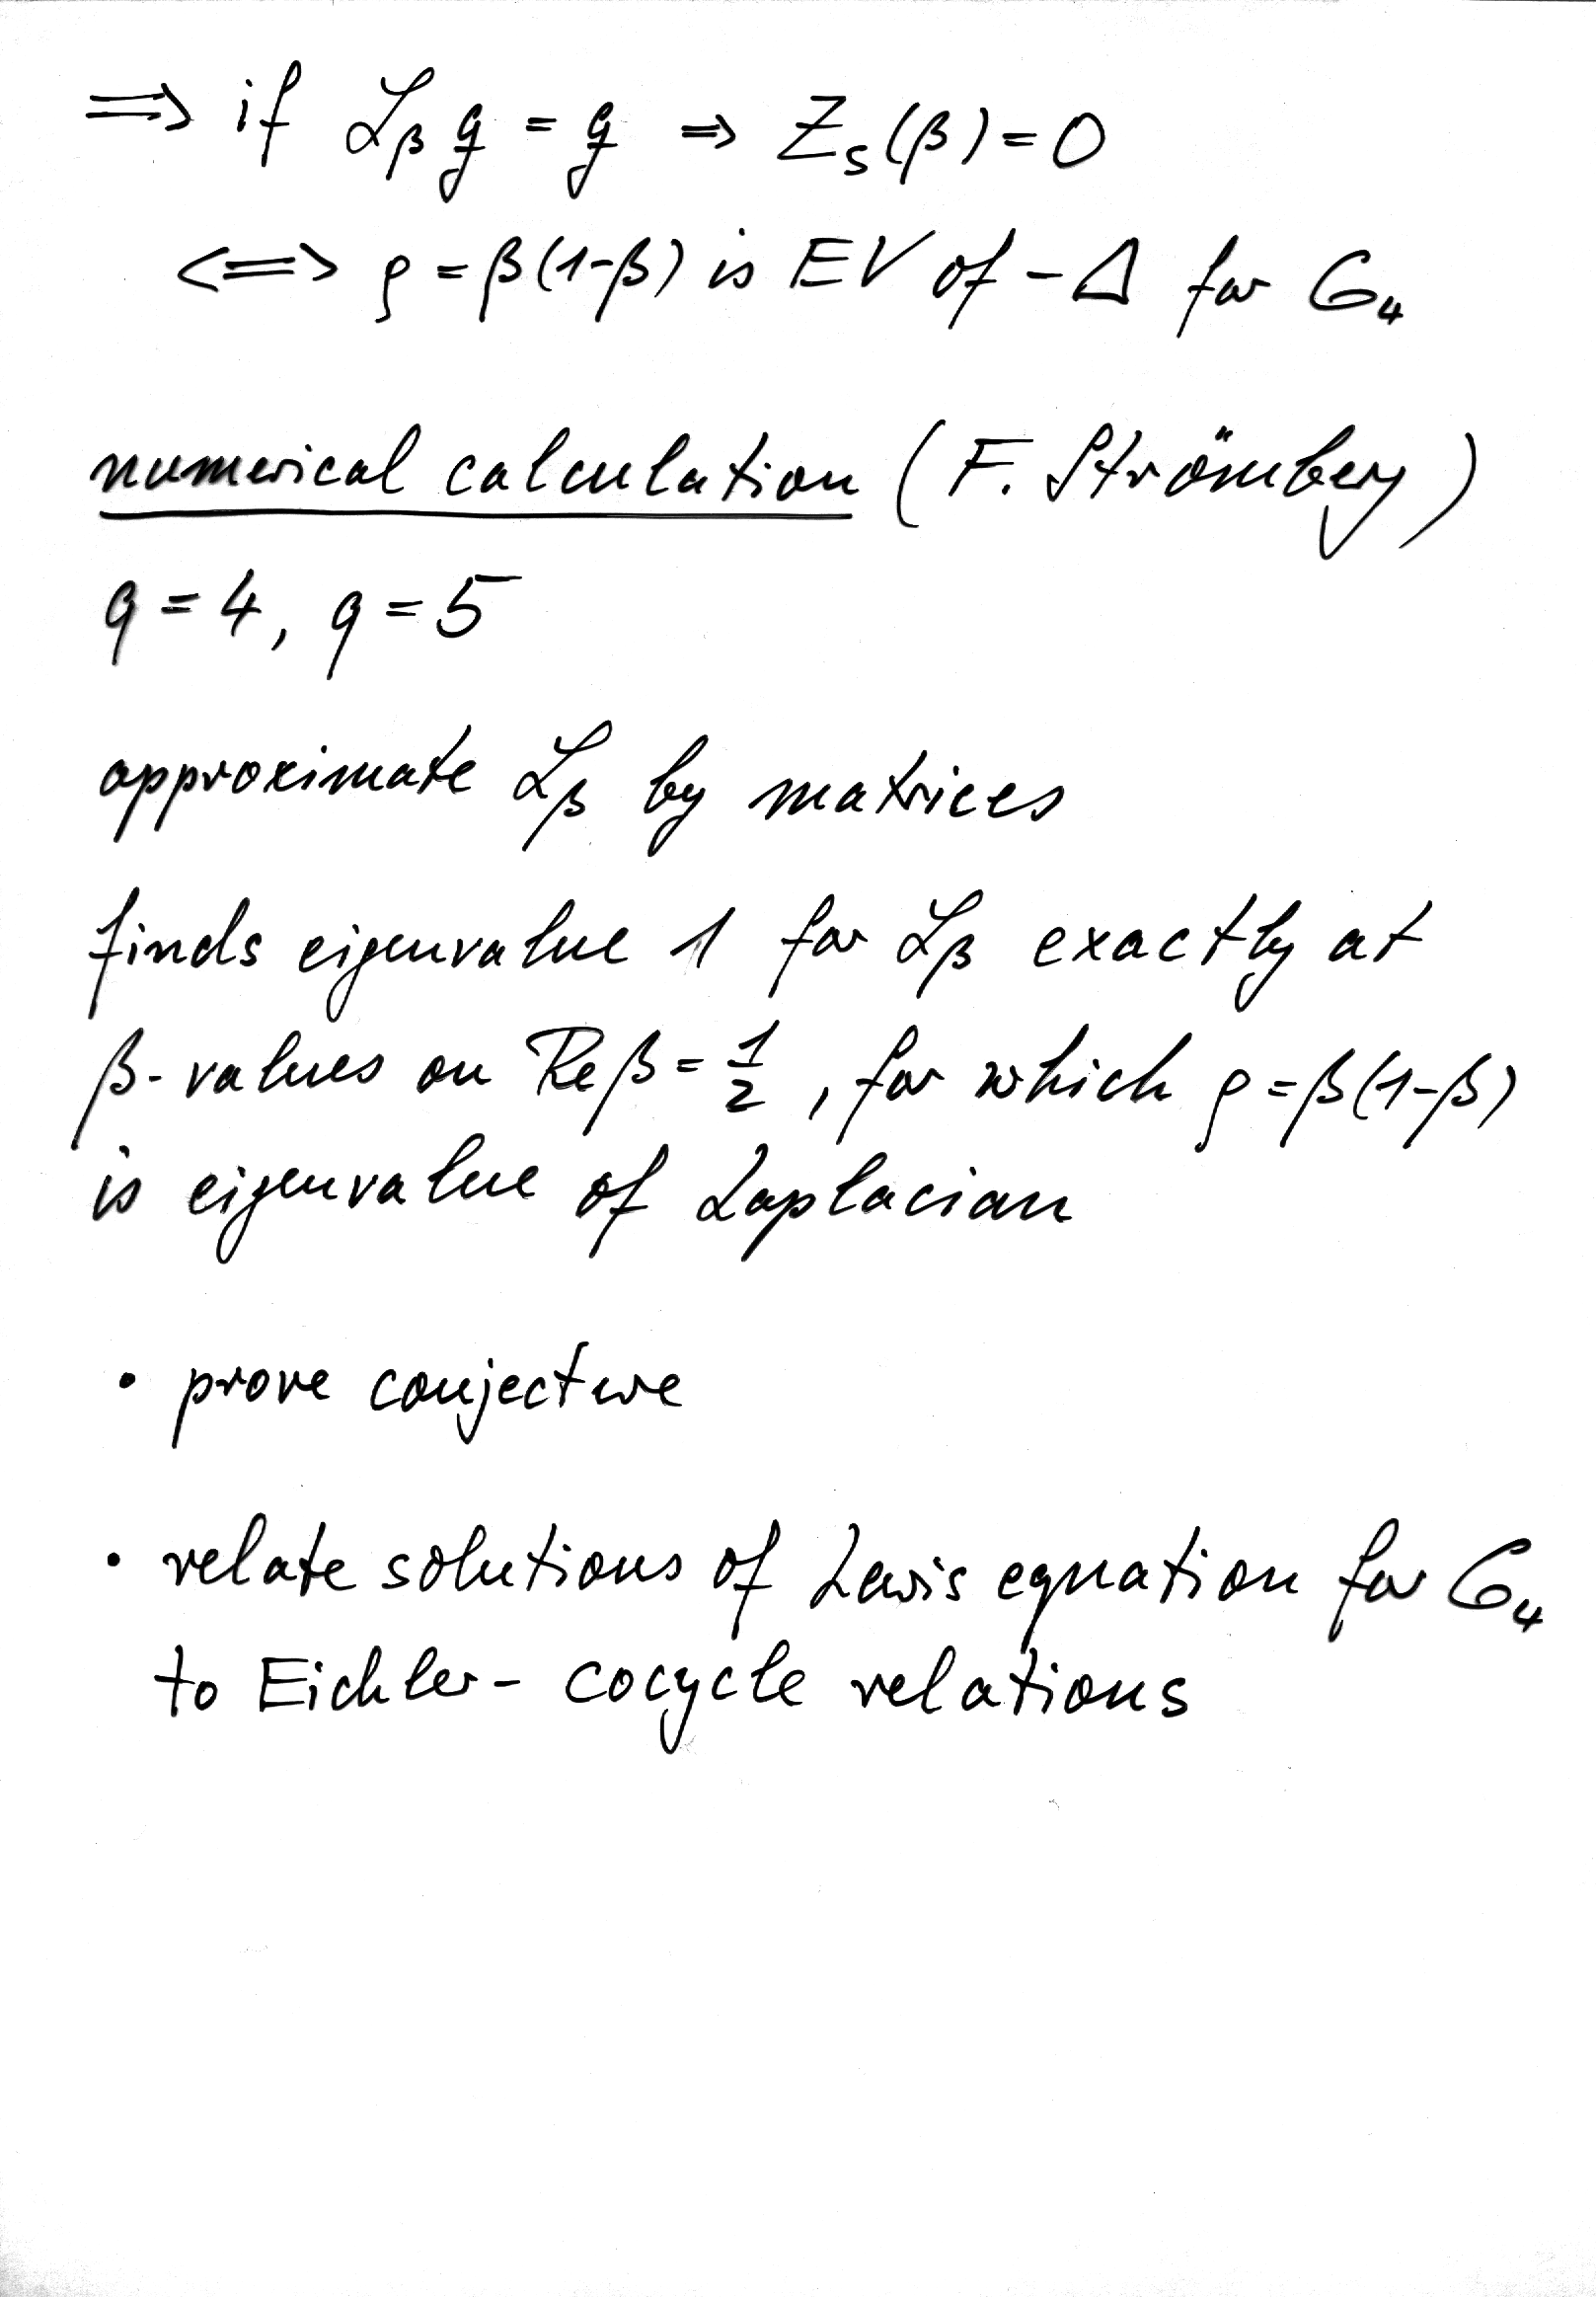 ⇒ if ℒ_β g = g ⇒ Z_S(β) = 0
<=> ρ = β(1-β) is EV of -Δ for G_4
numerical calculation (F. Strömberg)
q = 4, q = 5
approximate ℒ_β by matrices
finds eigenvalue 1 for ℒ_β exactly at
β-values on Re β = 1/2, for which ρ = β(1-β)
is eigenvalue of Laplacian
• prove conjecture
• relate solutions of Lewis equation for G_4
to Eichler-cocycle relations